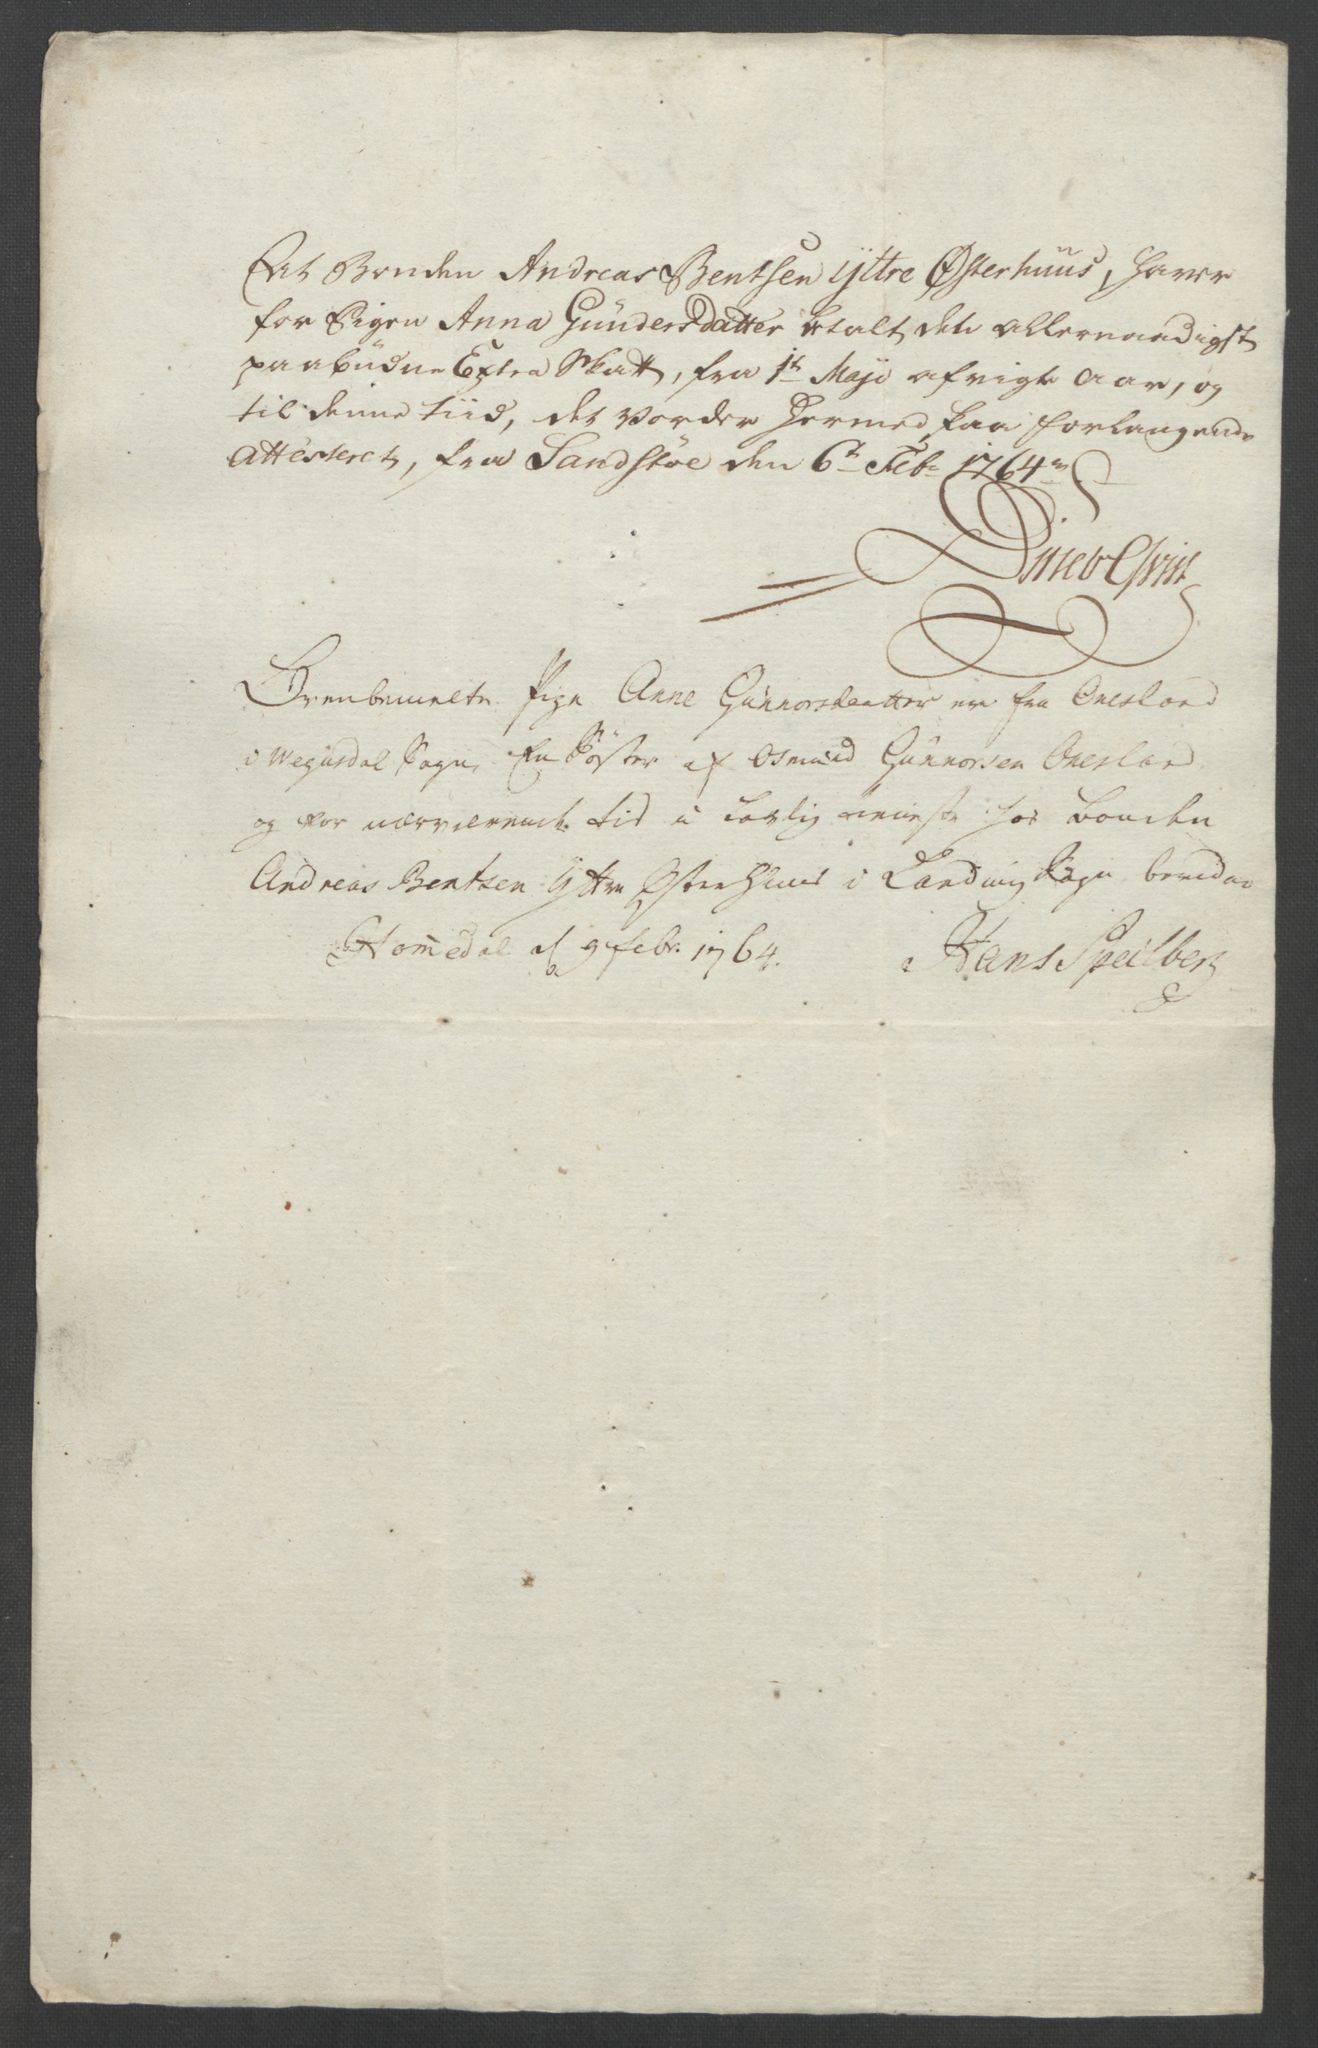 At Bonden Andreas Bentsen ÿttre Østerhuus, haver
for Pigen Anna Gündersdatter betalt den allernaadigst
paabüdne Extra Skatt, fra 1te Maji afvigte Aar, og
til denne tiid, det vorder hermed paa forlangende
attesteret, fra Landsköe den 6te Feb: 1764
Ovenbemelte Pige Anne Günnorsdaatter er fra Onesland
i Wegusdal Sogn, En Söster af Osmund Günnorsen Onesland
og for nærværende tid i lovlig tieneste hos Bonden
Andreas Bentsen Yttre Østerhuus i Landvig Sogn bevidner
Homedal d 9 febr. 1764. Hans Speilberg